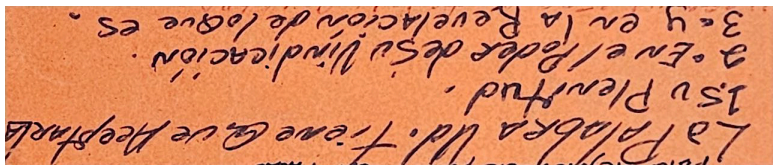 La Palabra Ud. Tiene Que Aceptarla
1 Su Plenitud.
2 = En el Poder de Su Vindicación.
3 = y en la Revelación de lo que es.